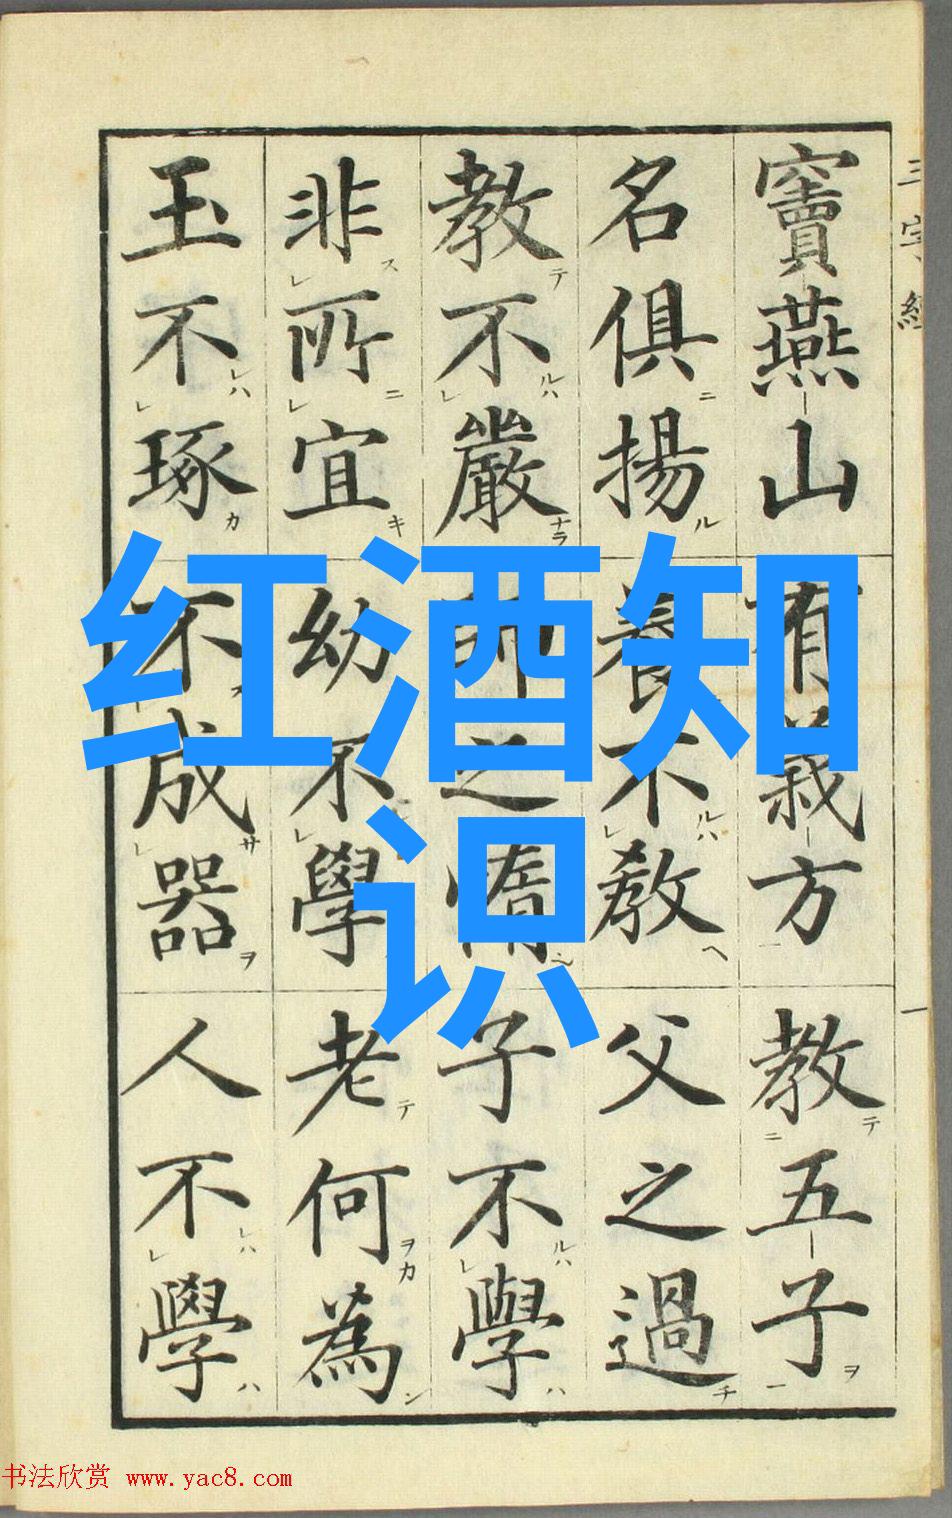 三字經
竇燕山有義方教五子
名俱揚養不教父之過
教不嚴之惰子不學
非所宜幼不學老何為
玉不琢不成器人不學
一
红酒知
识
书法欣赏 www.yac8.com